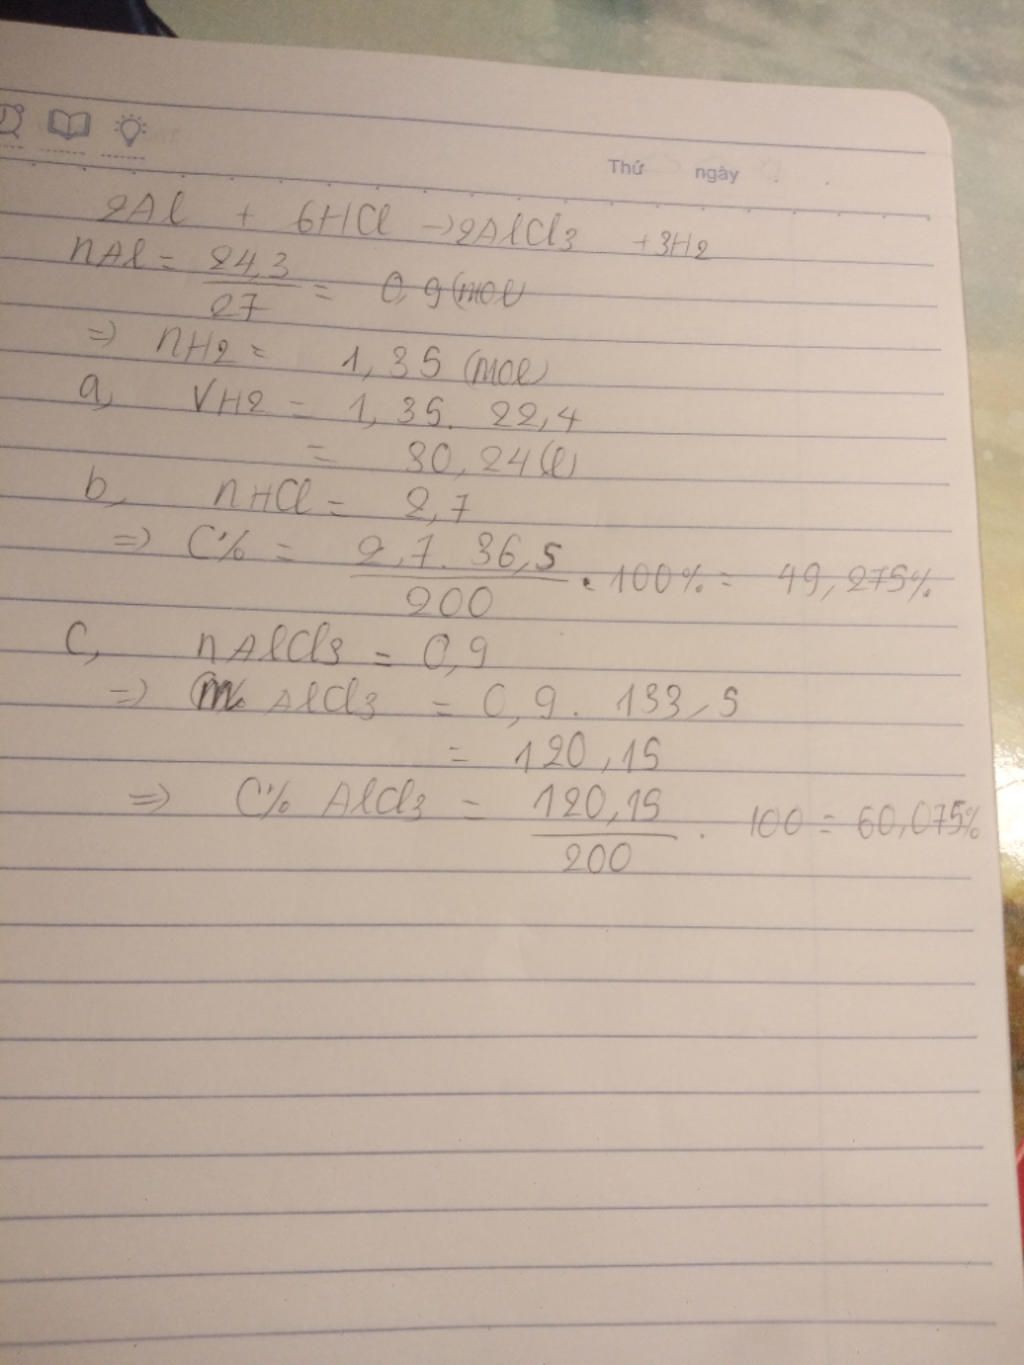 Thứ ngày
2Al + 6HCl → 2AlCl3 + 3H2
nAl = 24,3 / 27 = 0,9 (mol
=> nH2 = 1,35 (mol)
a, VH2 = 1,35. 22,4
= 30,24 (l)
b, nHCl = 2,7
=> C% = 2,7. 36,5 / 200 . 100% = 49,275%
C, nAlCl3 = 0,9
=> m AlCl3 = 0,9. 133,5
= 120,15
=> C% AlCl3 = 120,15 / 200 . 100 = 60,075%